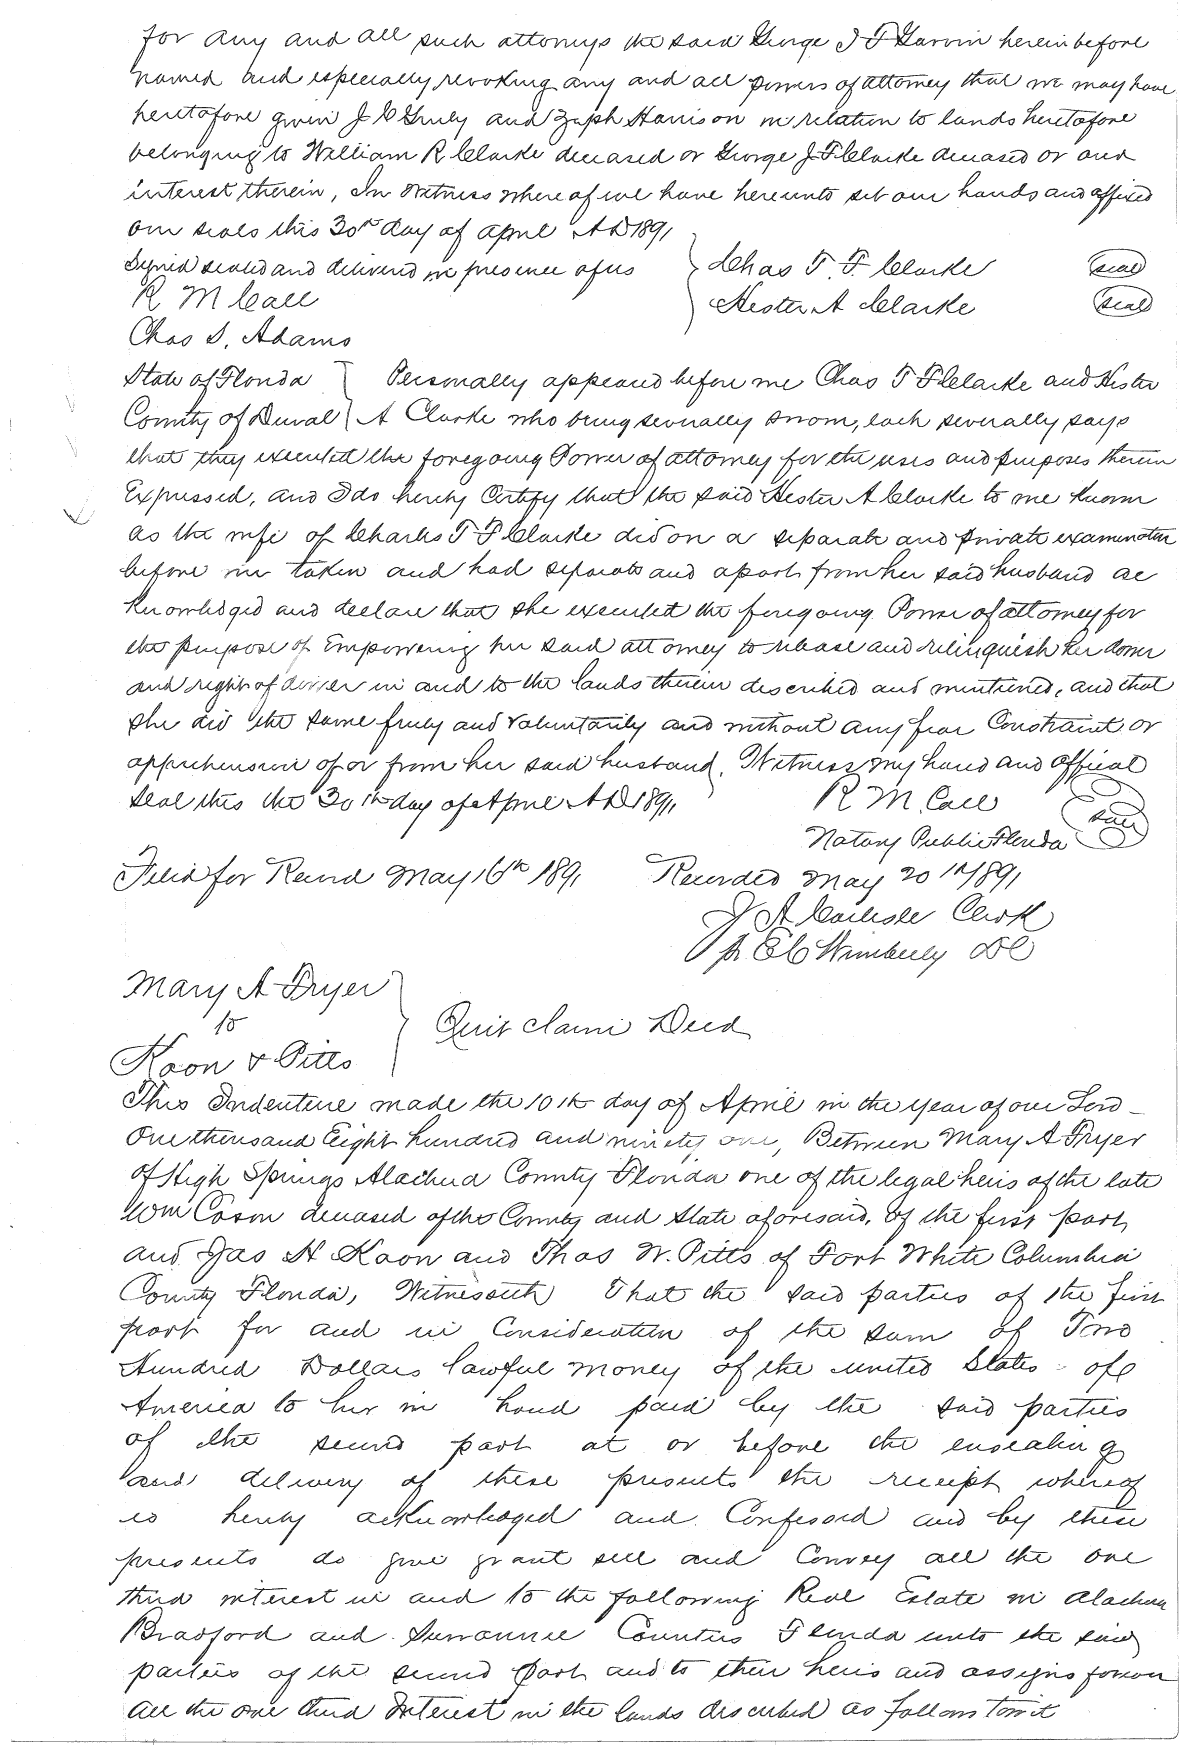 for any and all such attorneys the said George J F Garvin herein before
named and especially revoking any and all powers of attorney that we may have
heretofore given J C Gruly and Zeph Harrison in relation to lands heretofore
belonging to William R Clarke deceased or George J F Clarke deceased or and
interest therein, In Witness where of we have hereunto set our hands and affixed
our seals this 30th day of April A D 1891
Signed sealed and delivered in presence of us } Chas T. F. Clarke (seal)
R M Call Hester A Clarke (seal)
Chas S. Adams
State of Florida } Personally appeared before me Chas T F Clarke and Hester
County of Duval } A Clarke who being severally sworn, each severally says
that they executed the foregoing Power of attorney for the uses and purposes therein
Expressed, and I do hereby Certify that the said Hester A Clarke to me known
as the wife of Charles T F Clarke did on a separate and private examination
before me taken and had separate and apart from her said husband ac
knowledged and declare that she executed the foregoing Power of attorney for
the purpose of Empowering her said attorney to release and relinquish her dower
and right of dower in and to the lands therein described and mentioned, and that
she did the same freely and voluntarily and without any fear Constraint or
apprehension of or from her said husband. Witness my hand and official
seal this the 30th day of April A D 1891, R M. Call
Notary Public Florida (seal)
Filed for Record May 16th 1891 Recorded May 20th 1891
J A Carlisle Clerk
pr E C Wimberly D C
Mary A Fryer
to } Quit claim Deed
Koon & Pitts
This Indenture made the 10th day of April in the year of our Lord
One thousand Eight hundred and ninety one, Between Mary A Fryer
of High Springs Alachua County Florida one of the legal heirs of the late
Wm Cason deceased of the County and State aforesaid, of the first part,
and Jas H Koon and Thos W. Pitts of Fort White Columbia
County Florida, Witnesseth That the said parties of the first
part for and in Consideration of the sum of Two
Hundred Dollars lawful money of the united States of
America to her in hand paid by the said parties
of the second part at or before the ensealing
and delivery of these presents the receipt whereof
is hereby acknowledged and Confessed and by these
presents do give grant sell and Convey all the one
third interest in and to the following Real Estate in Alachua
Bradford and Suwannee Counties Florida unto the said
parties of the second part and to their heirs and assigns forever
all the one third Interest in the lands described as follows towit